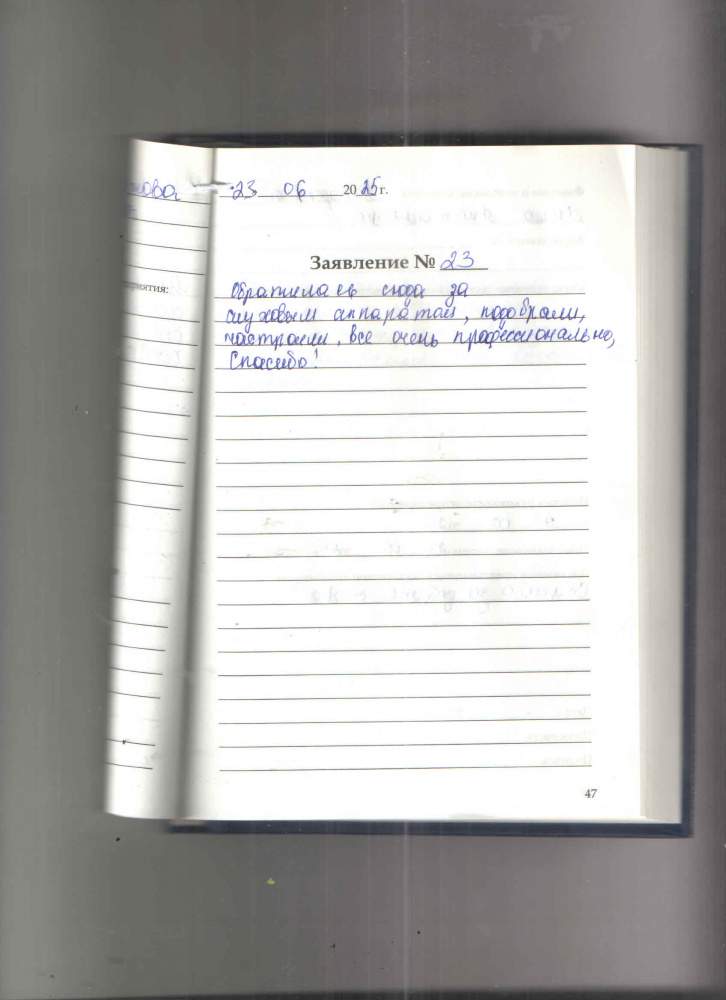 23 06 2025г.
Заявление № 23
приятия:
Обратилась сюда за
слуховым аппаратом, подобрали,
настроили, все очень профессионально,
Спасибо!
47